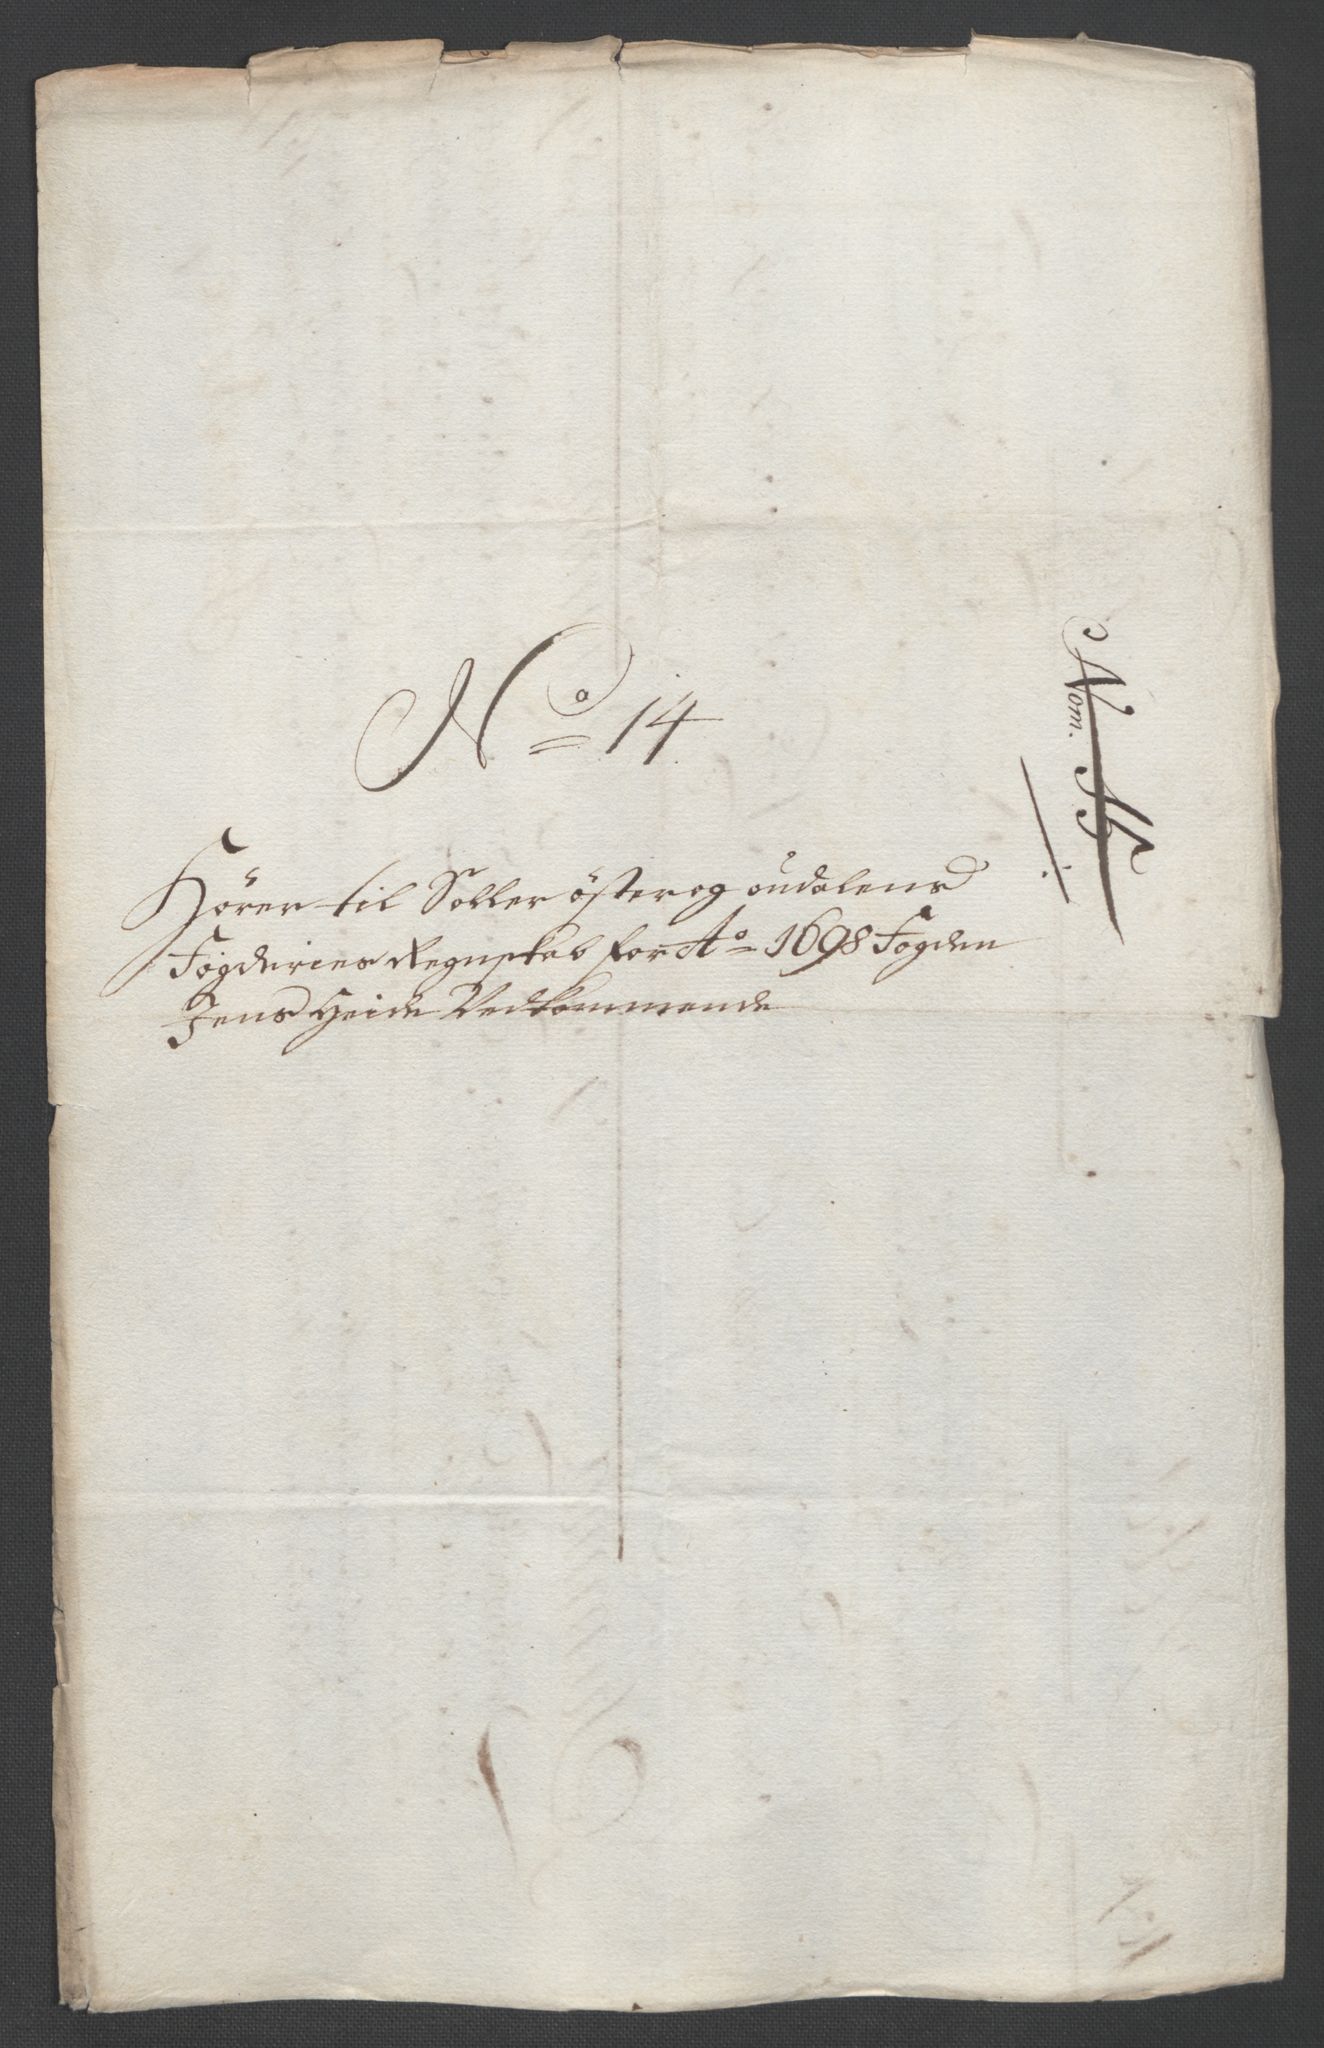 No 14
Hörer til Soller öster og oudalens
Fogderies Regnskab for Ao 1698 Fogden
Jens Heide Vedkommende
Nom.